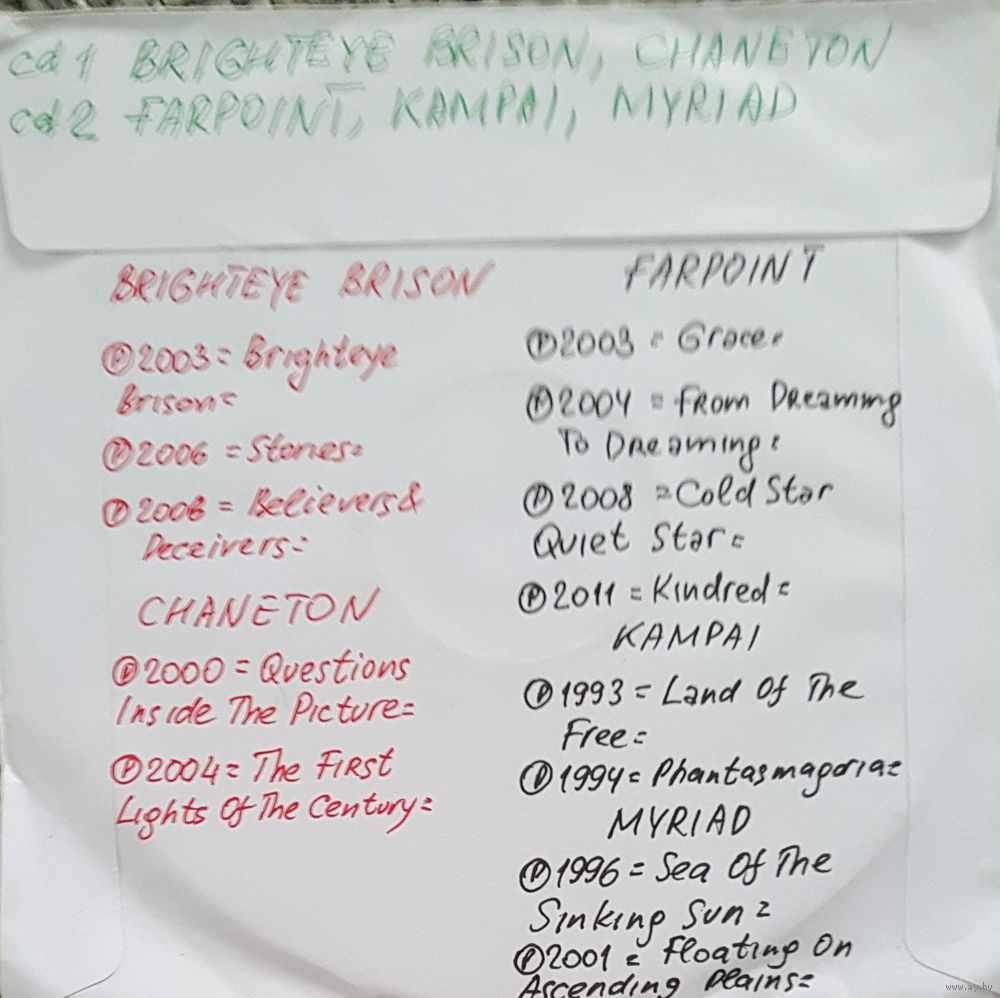 cd 1 BRIGHTEYE BRISON, CHANETON
cd 2 FARPOINT, KAMPAI, MYRIAD
BRIGHTEYE BRISON
Ⓟ2003 = Brighteye
Brison=
Ⓟ2006 = Stories=
Ⓟ2008 = Believers&
Deceivers=
CHANETON
Ⓟ2000 = Questions
Inside The Picture=
Ⓟ2004= The First
Lights Of The Century=
FARPOINT
Ⓟ2003 = Grace=
Ⓟ2004 = From Dreaming
To Dreaming=
Ⓟ2008 =Cold Star
Quiet Star=
Ⓟ2011 = Kindred=
KAMPAI
Ⓟ1993 = Land Of The
Free=
Ⓟ1994= Phantasmagoria=
MYRIAD
Ⓟ1996 = Sea Of The
Sinking Sun=
Ⓟ2001 = Floating On
Ascending Plains=
www.ay.by